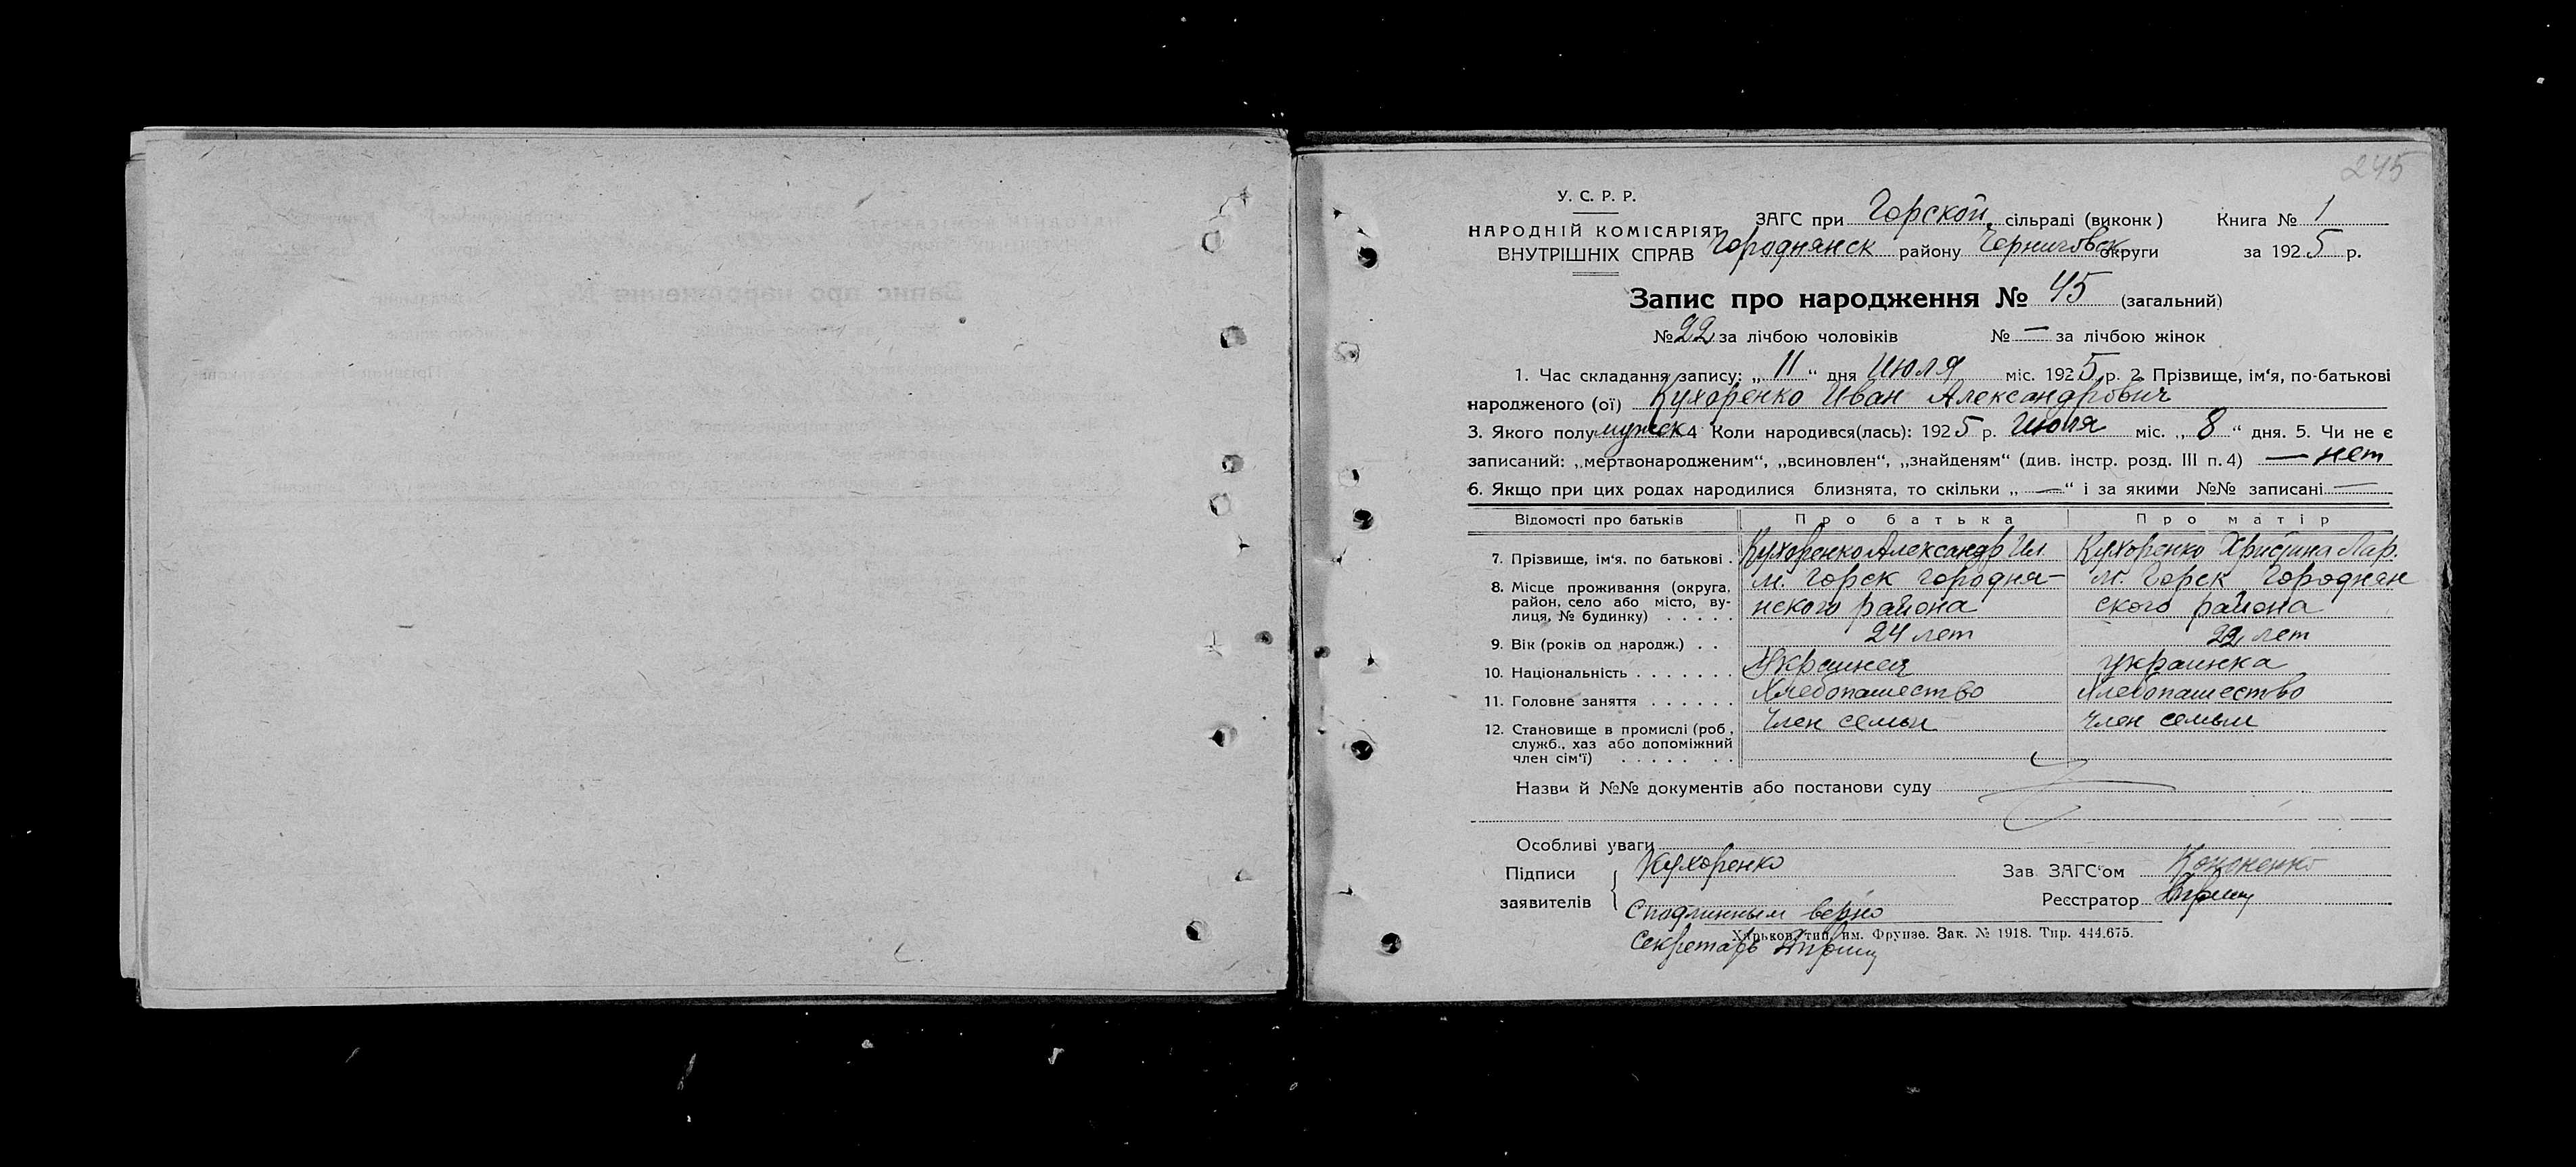 245
У. С. Р. Р.
НАРОДНІЙ КОМІСАРІЯТ
ВНУТРІШНІХ СПРАВ
ЗАГС при Горской сільраді (виконк) Книга № 1
Городнянск району Черниговск округи за 1925 р.
Запис про народження № 45 (загальний)
№ 22 за лічбою чоловіків № — за лічбою жінок
1. Час складання запису: „11“ дня Июля міс. 1925 р. 2. Прізвище, ім‘я, по-батькові
народженого (ої) Кухоренко Иван Александрович
3. Якого полу мужск 4 Коли народився(лась): 1925 р. Июля міс. „8“ дня. 5. Чи не є
записаний: „мертвонародженим“, „всиновлен“, „знайденям“ (див. інстр. розд. III п. 4) — нет
6. Якщо при цих родах народилися близнята, то скільки „—“ і за якими №№ записані —
Відомості про батьків Про батька Про матір
7. Прізвище, ім‘я. по батькові . Кухоренко Александр Ил. Кухоренко Христина Лар.
8. Місце проживання (округа, район, село або місто, ву-лиця, № будинку) . . . . . м. Горск Городня-нского района м. Горск Городнян ского района
9. Вік (років од народж.) . . 24 лет 22 лет
10. Національність . . . . . . . Украинец украинка
11. Головне заняття . . . . . . Хлебопашество Хлебопашество
12. Становище в промислі (роб, служб., хаз або допоміжний член сім‘ї) . . . . . . . Член семьи Член семьи
Назви й №№ документів або постанови суду
Особливі уваги
Підписи заявителів Кухоренко
Зав. ЗАГС‘ом Кононенко
Реєстратор
Сподлинным верно
Секретарь
Харьков, тип. им. Фрунзе. Зак. № 1918. Тир. 444.675.